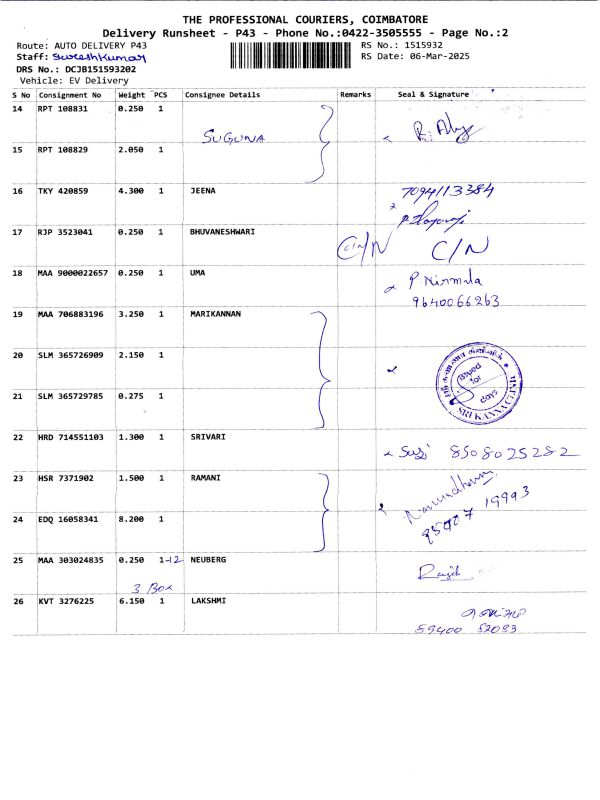 THE PROFESSIONAL COURIERS, COIMBATORE
Delivery Runsheet - P43 - Phone No.:0422-3505555 - Page No.:2
Route: AUTO DELIVERY P43
RS No.: 1515932
Staff: Sureshkumar
RS Date: 06-Mar-2025
DRS No.: DCJB151593202
Vehicle: EV Delivery
S No Consignment No Weight PCS Consignee Details Remarks Seal & Signature
14 RPT 108831 0.250 1
SUGUNA
15 RPT 108829 2.050 1
16 TKY 420859 4.300 1 JEENA 7094113384
17 RJP 3523041 0.250 1 BHUVANESHWARI C/N C/N
18 MAA 9000022657 0.250 1 UMA P Nirmala
9640066263
19 MAA 706883196 3.250 1 MARIKANNAN
20 SLM 365726909 2.150 1
issued
for
days
21 SLM 365729785 0.275 1
22 HRD 714551103 1.300 1 SRIVARI 8508025282
23 HSR 7371902 1.500 1 RAMANI
95907 19993
24 EDQ 16058341 8.200 1
25 MAA 303024835 0.250 1-12 NEUBERG
3 Box
26 KVT 3276225 6.150 1 LAKSHMI
59400 52083